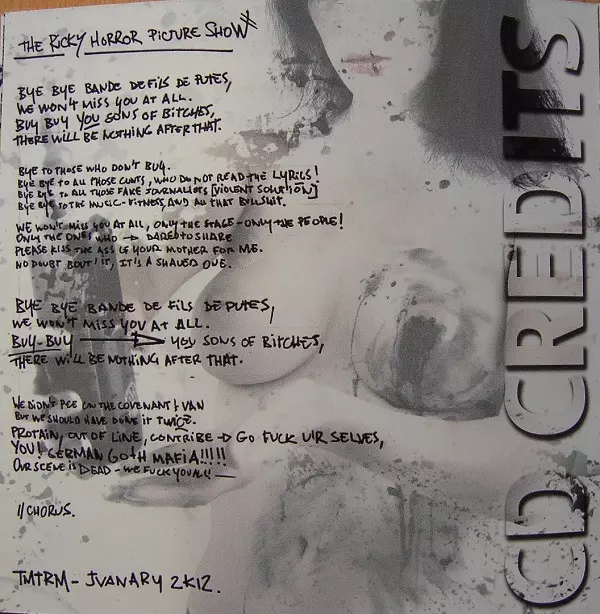 THE RICKY HORROR PICTURE SHOW
BYE BYE BANDE DE FILS DE PUTES,
WE WON'T MISS YOU AT ALL.
BUY BUY YOU SONS OF BITCHES,
THERE WILL BE NOTHING AFTER THAT.
BYE TO THOSE WHO DON'T BUY.
BYE BYE TO ALL THOSE CUNTS, WHO DO NOT READ THE LYRICS!
BYE BYE TO ALL THOSE FAKE JOURNALISTS [VIOLENT SOLUTION]
BYE BYE TO THE MUSIC-FITNESS, AND ALL THAT BULLSHIT.
WE WON'T MISS YOU AT ALL, ONLY THE STAGE - ONLY THE PEOPLE!
ONLY THE ONES WHO → DARED TO SHARE
PLEASE KISS THE ASS OF YOUR MOTHER FOR ME.
NO DOUBT BOUT IT, IT'S A SHAVED ONE.
BYE BYE BANDE DE FILS DE PUTES,
WE WON'T MISS YOU AT ALL.
BUY-BUY → YOU SONS OF BITCHES,
THERE WILL BE NOTHING AFTER THAT.
WE DIDN'T PEE ON THE COVENANT VAN
BUT WE SHOULD HAVE DONE IT TWICE.
PROTAIN, OUT OF LINE, CONTRIBE → GO FUCK UR SELVES,
YOU! GERMAN GOTH MAFIA!!!!!
OUR SCENE IS DEAD - WE FUCK YOU ALL!
//CHORUS.
TMTRM - JVANARY 2K12.
CD CREDITS